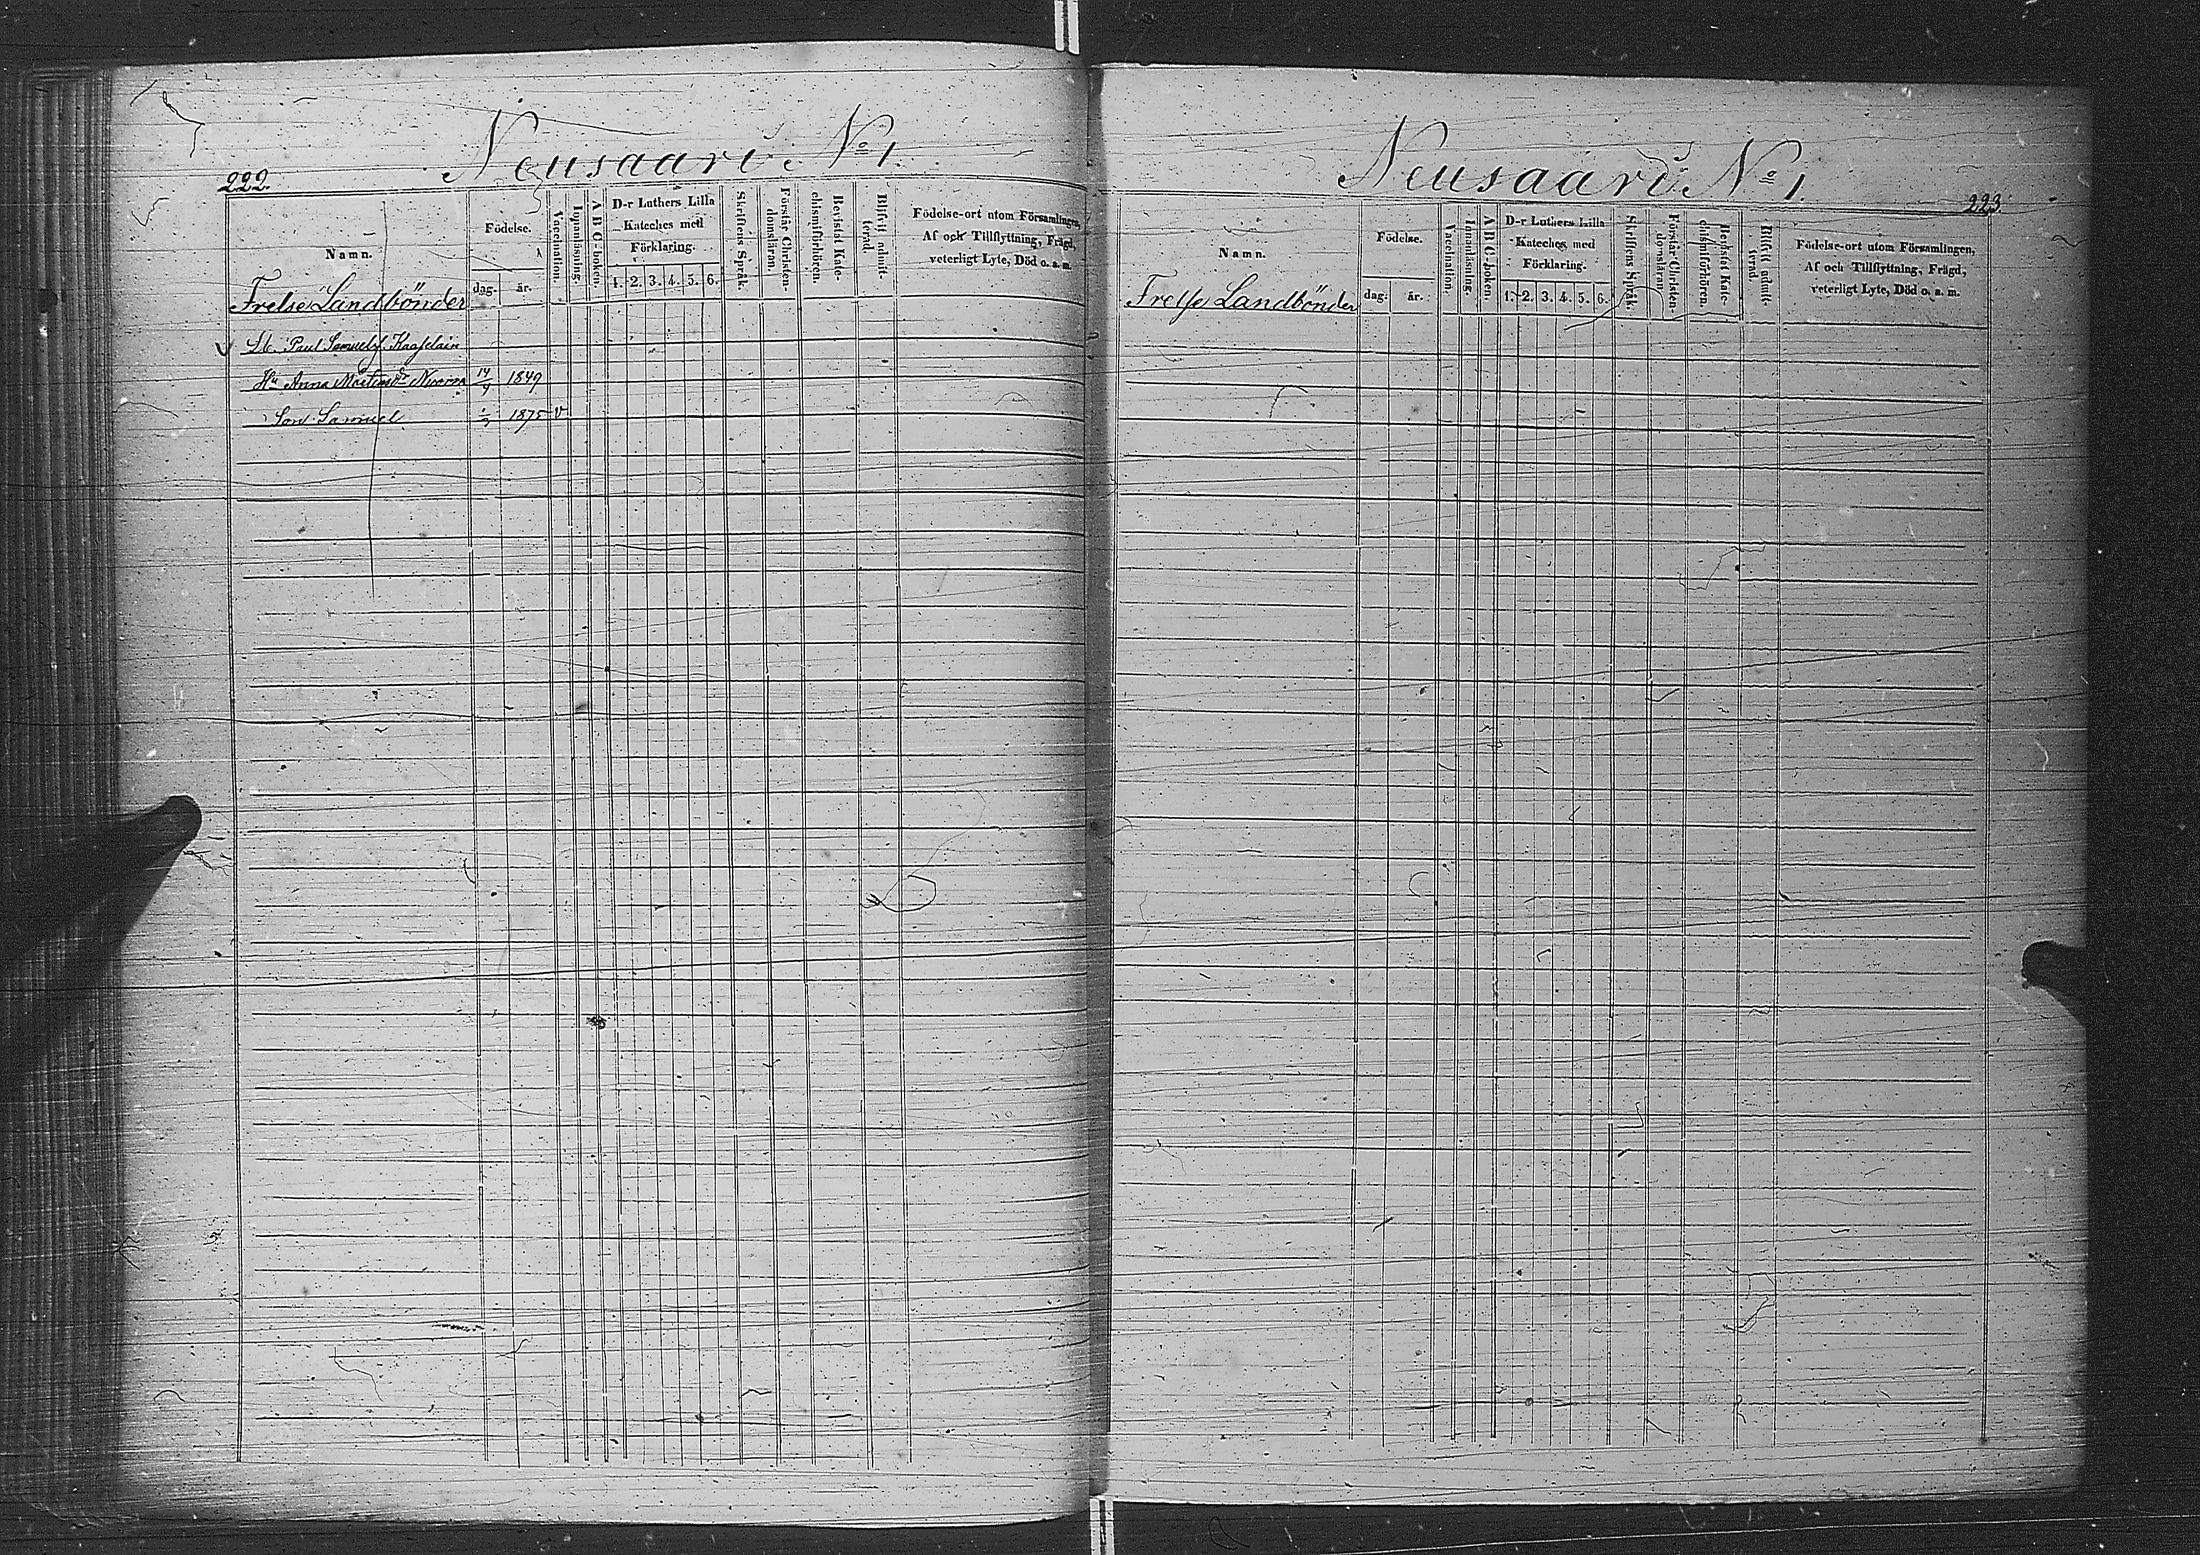 222.
Neusaari No 1.
Namn.
Födelse.
dag.
år.
Vaccination.
Innanläsning.
A B C-boken.
D-r Luthers Lilla
Kateches med
Förklaring.
1. 2. 3. 4. 5. 6.
Skriftens Språk.
Förstår Christen-
domsläran.
Bevistat Kate-
chismiförhören.
Blifvit admit-
terad.
Födelse-ort utom Församlingen,
Af och Tillflyttning, Frägd,
veterligt Lyte, Död o. a. m.
Frelse Landbönder
Lb. Paul Samuelsf.
Hu Anna 1849
Son Samuel 1875 v
Neusaari No 1.
223.
Namn.
Födelse.
dag.
år.
Vaccination.
Innanläsning.
A B C-boken.
D-r Luthers Lilla
Kateches med
Förklaring.
1. 2. 3. 4. 5. 6.
Skriftens Språk.
Förstår Christen-
domsläran.
Bevistat Kate-
chismiförhören.
Blifvit admit-
terad.
Födelse-ort utom Församlingen,
Af och Tillflyttning, Frägd,
veterligt Lyte, Död o. a. m.
Frelse Landbönder